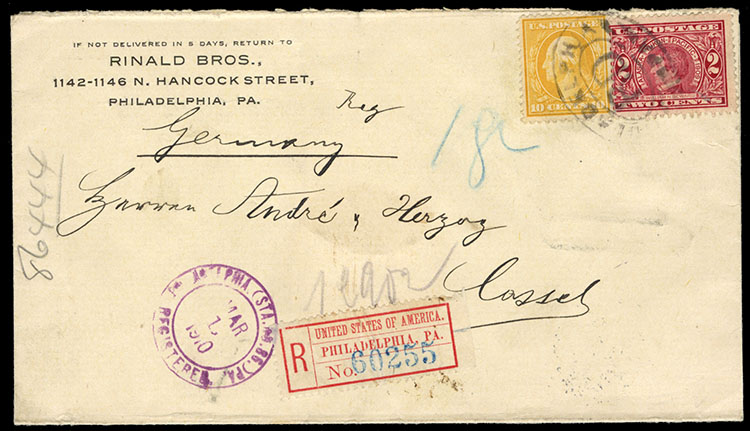 IF NOT DELIVERED IN 5 DAYS, RETURN TO
RINALD BROS.,
1142-1146 N. HANCOCK STREET,
PHILADELPHIA, PA.
U.S. POSTAGE
10 CENTS 10
U.S. POSTAGE
2 2
TWO CENTS
Reg
Germany
Herren André & Herzog
Cassel
86444
PHILADELPHIA, PA. (STA. No. 86.)
MAR
1910
REGISTERED
R
UNITED STATES OF AMERICA.
PHILADELPHIA, PA.
No. 60255